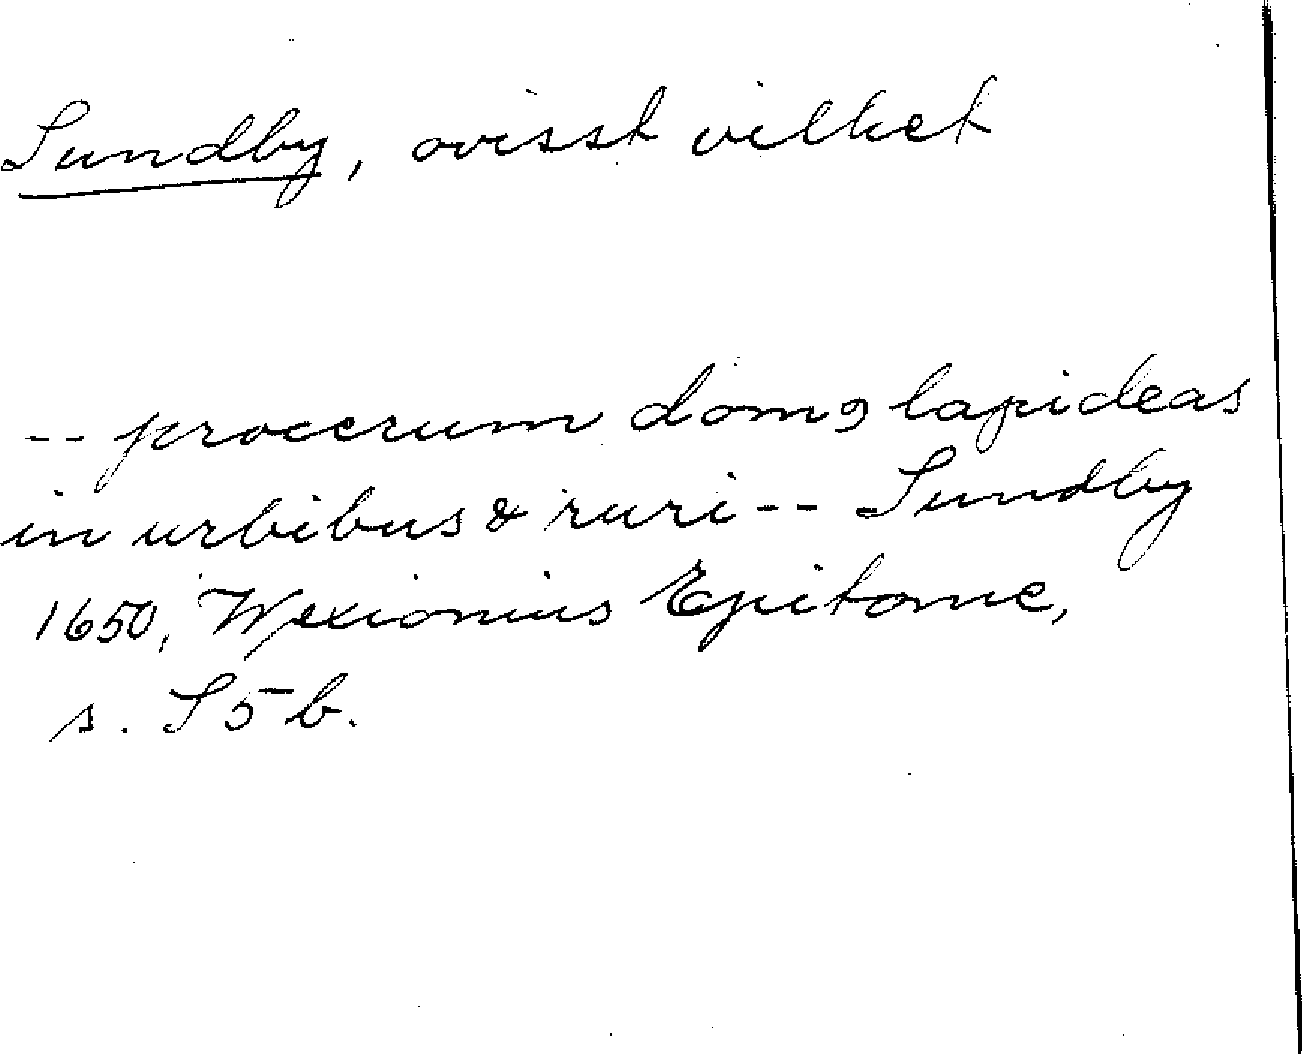 Sundby, ovisst vilket
-- procerum domꝰ lapideas
in urbibus & ruri -- Sundby
1650, Wexionius Epitome,
s. S5b.